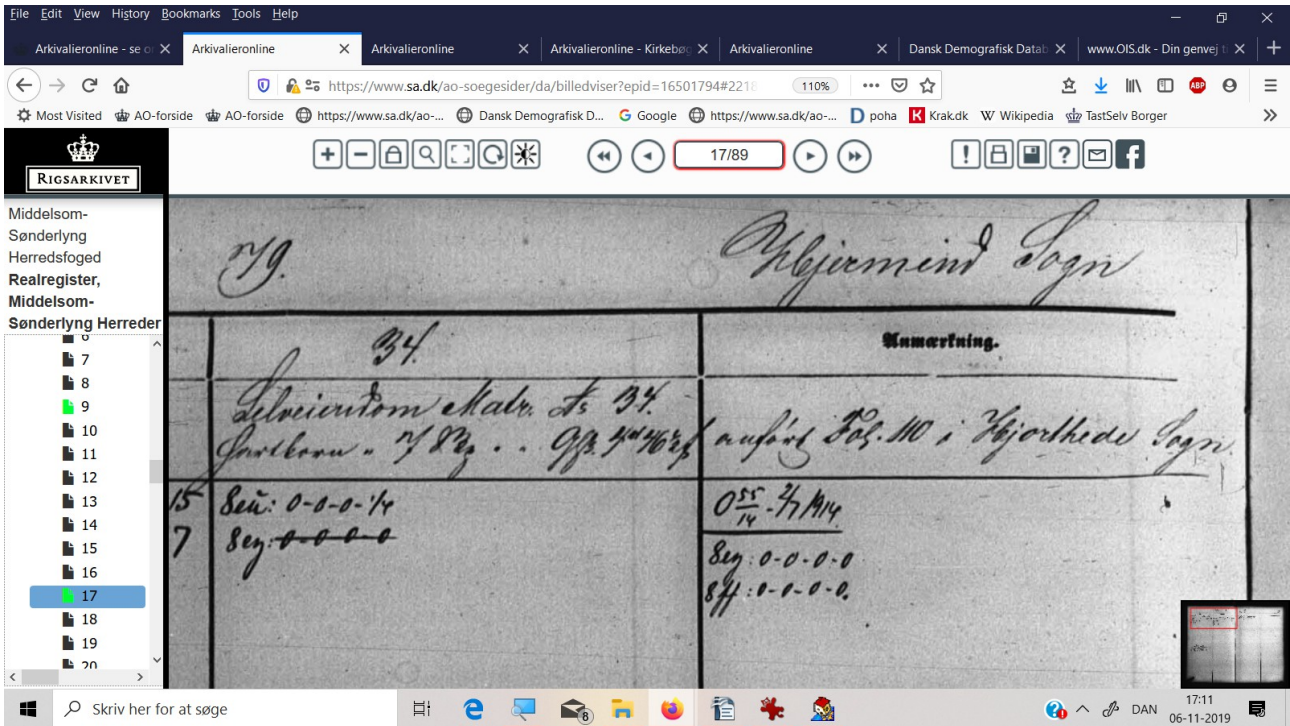 File Edit View History Bookmarks Tools Help
Arkivalieronline - se o
Arkivalieronline
Arkivalieronline
Arkivalieronline - Kirkebøg
Arkivalieronline
Dansk Demografisk Datab
www.OIS.dk - Din genvej ti
https://www.sa.dk/ao-soegesider/da/billedviser?epid=16501794#2218
110%
ABP
Most Visited AO-forside AO-forside https://www.sa.dk/ao-... Dansk Demografisk D... Google https://www.sa.dk/ao-... poha Krak.dk Wikipedia TastSelv Borger
RIGSARKIVET
17/89
Middelsom-
Sønderlyng
Herredsfoged
Realregister,
Middelsom-
Sønderlyng Herreder
6
7
8
9
10
11
12
13
14
15
16
17
18
19
20
Hjermind Sogn
34.
Anmærkning.
Selveierdom Matr. No 34.
Hartkorn
anført Fol. 110 i Hjorthede Sogn
15
0-0-0-1/4
7
0-0-0-0
0 55/14 - 2/7 1914
8eg: 0-0-0-0
8ff: 0-0-0-0.
Skriv her for at søge
8
DAN
17:11
06-11-2019